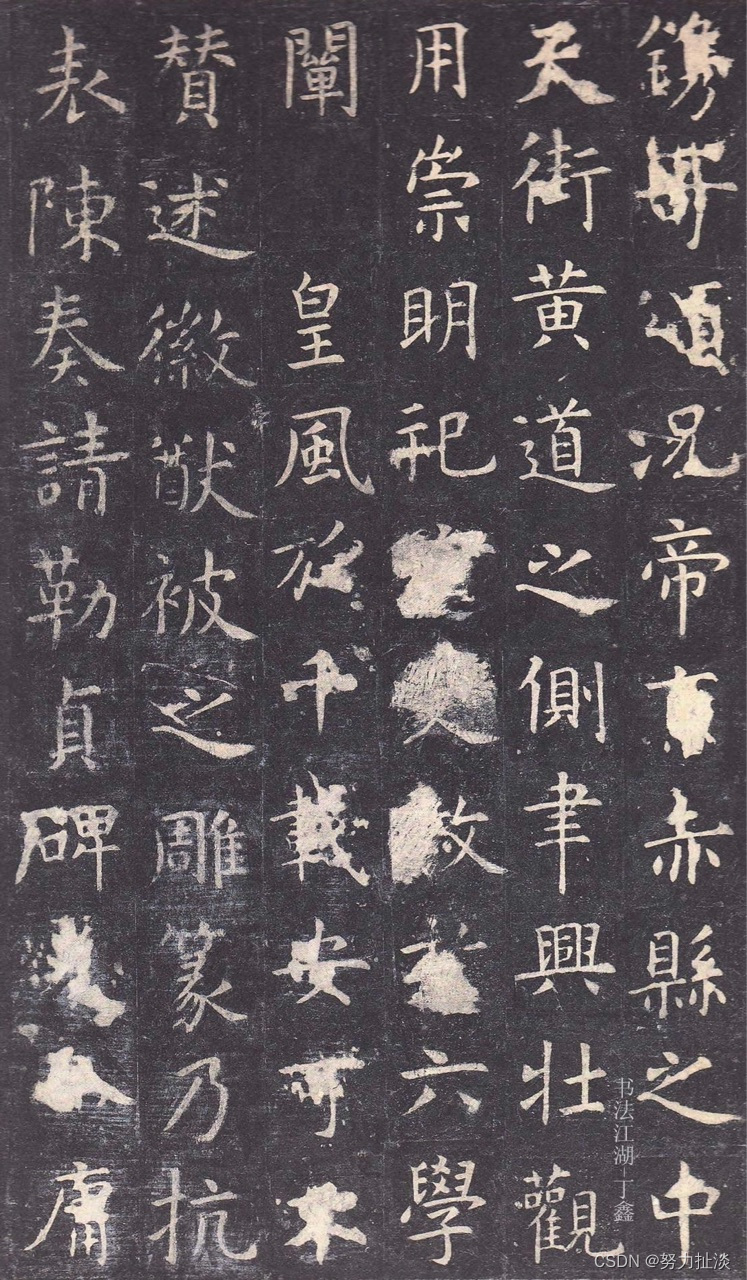 鐫頌況帝京赤縣之中
天街黃道之側聿興壯觀
用崇明祀宣文教於六學
闡皇風於千載安可不
贊述徽猷被之雕篆乃抗
表陳奏請勒貞碑庸
书法江湖-丁鑫
CSDN @努力扯淡